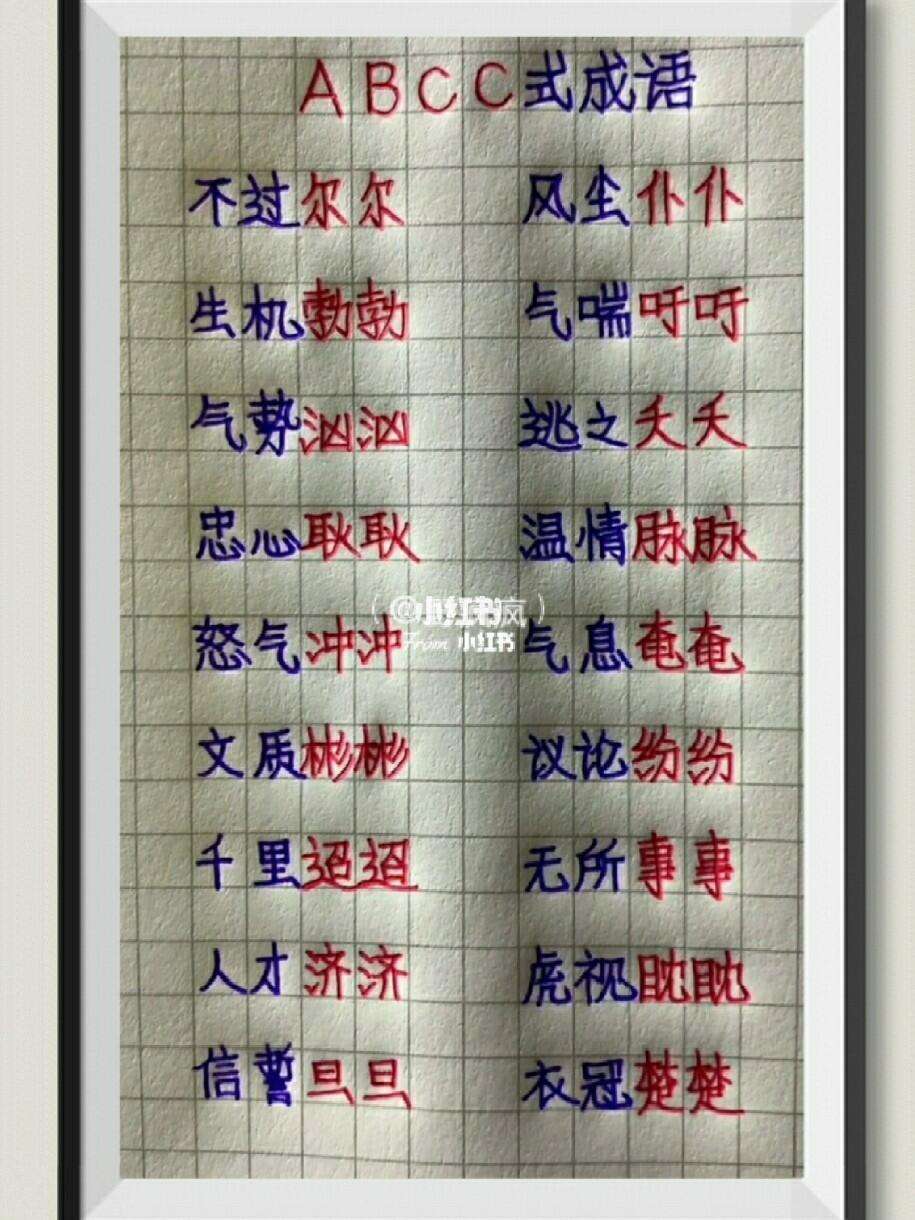 ABCC式成语
不过尔尔 风尘仆仆
生机勃勃 气喘吁吁
气势汹汹 逃之夭夭
忠心耿耿 温情脉脉
@小红书
怒气冲冲 气息奄奄
From 小红书
文质彬彬 议论纷纷
千里迢迢 无所事事
人才济济 虎视眈眈
信誓旦旦 衣冠楚楚